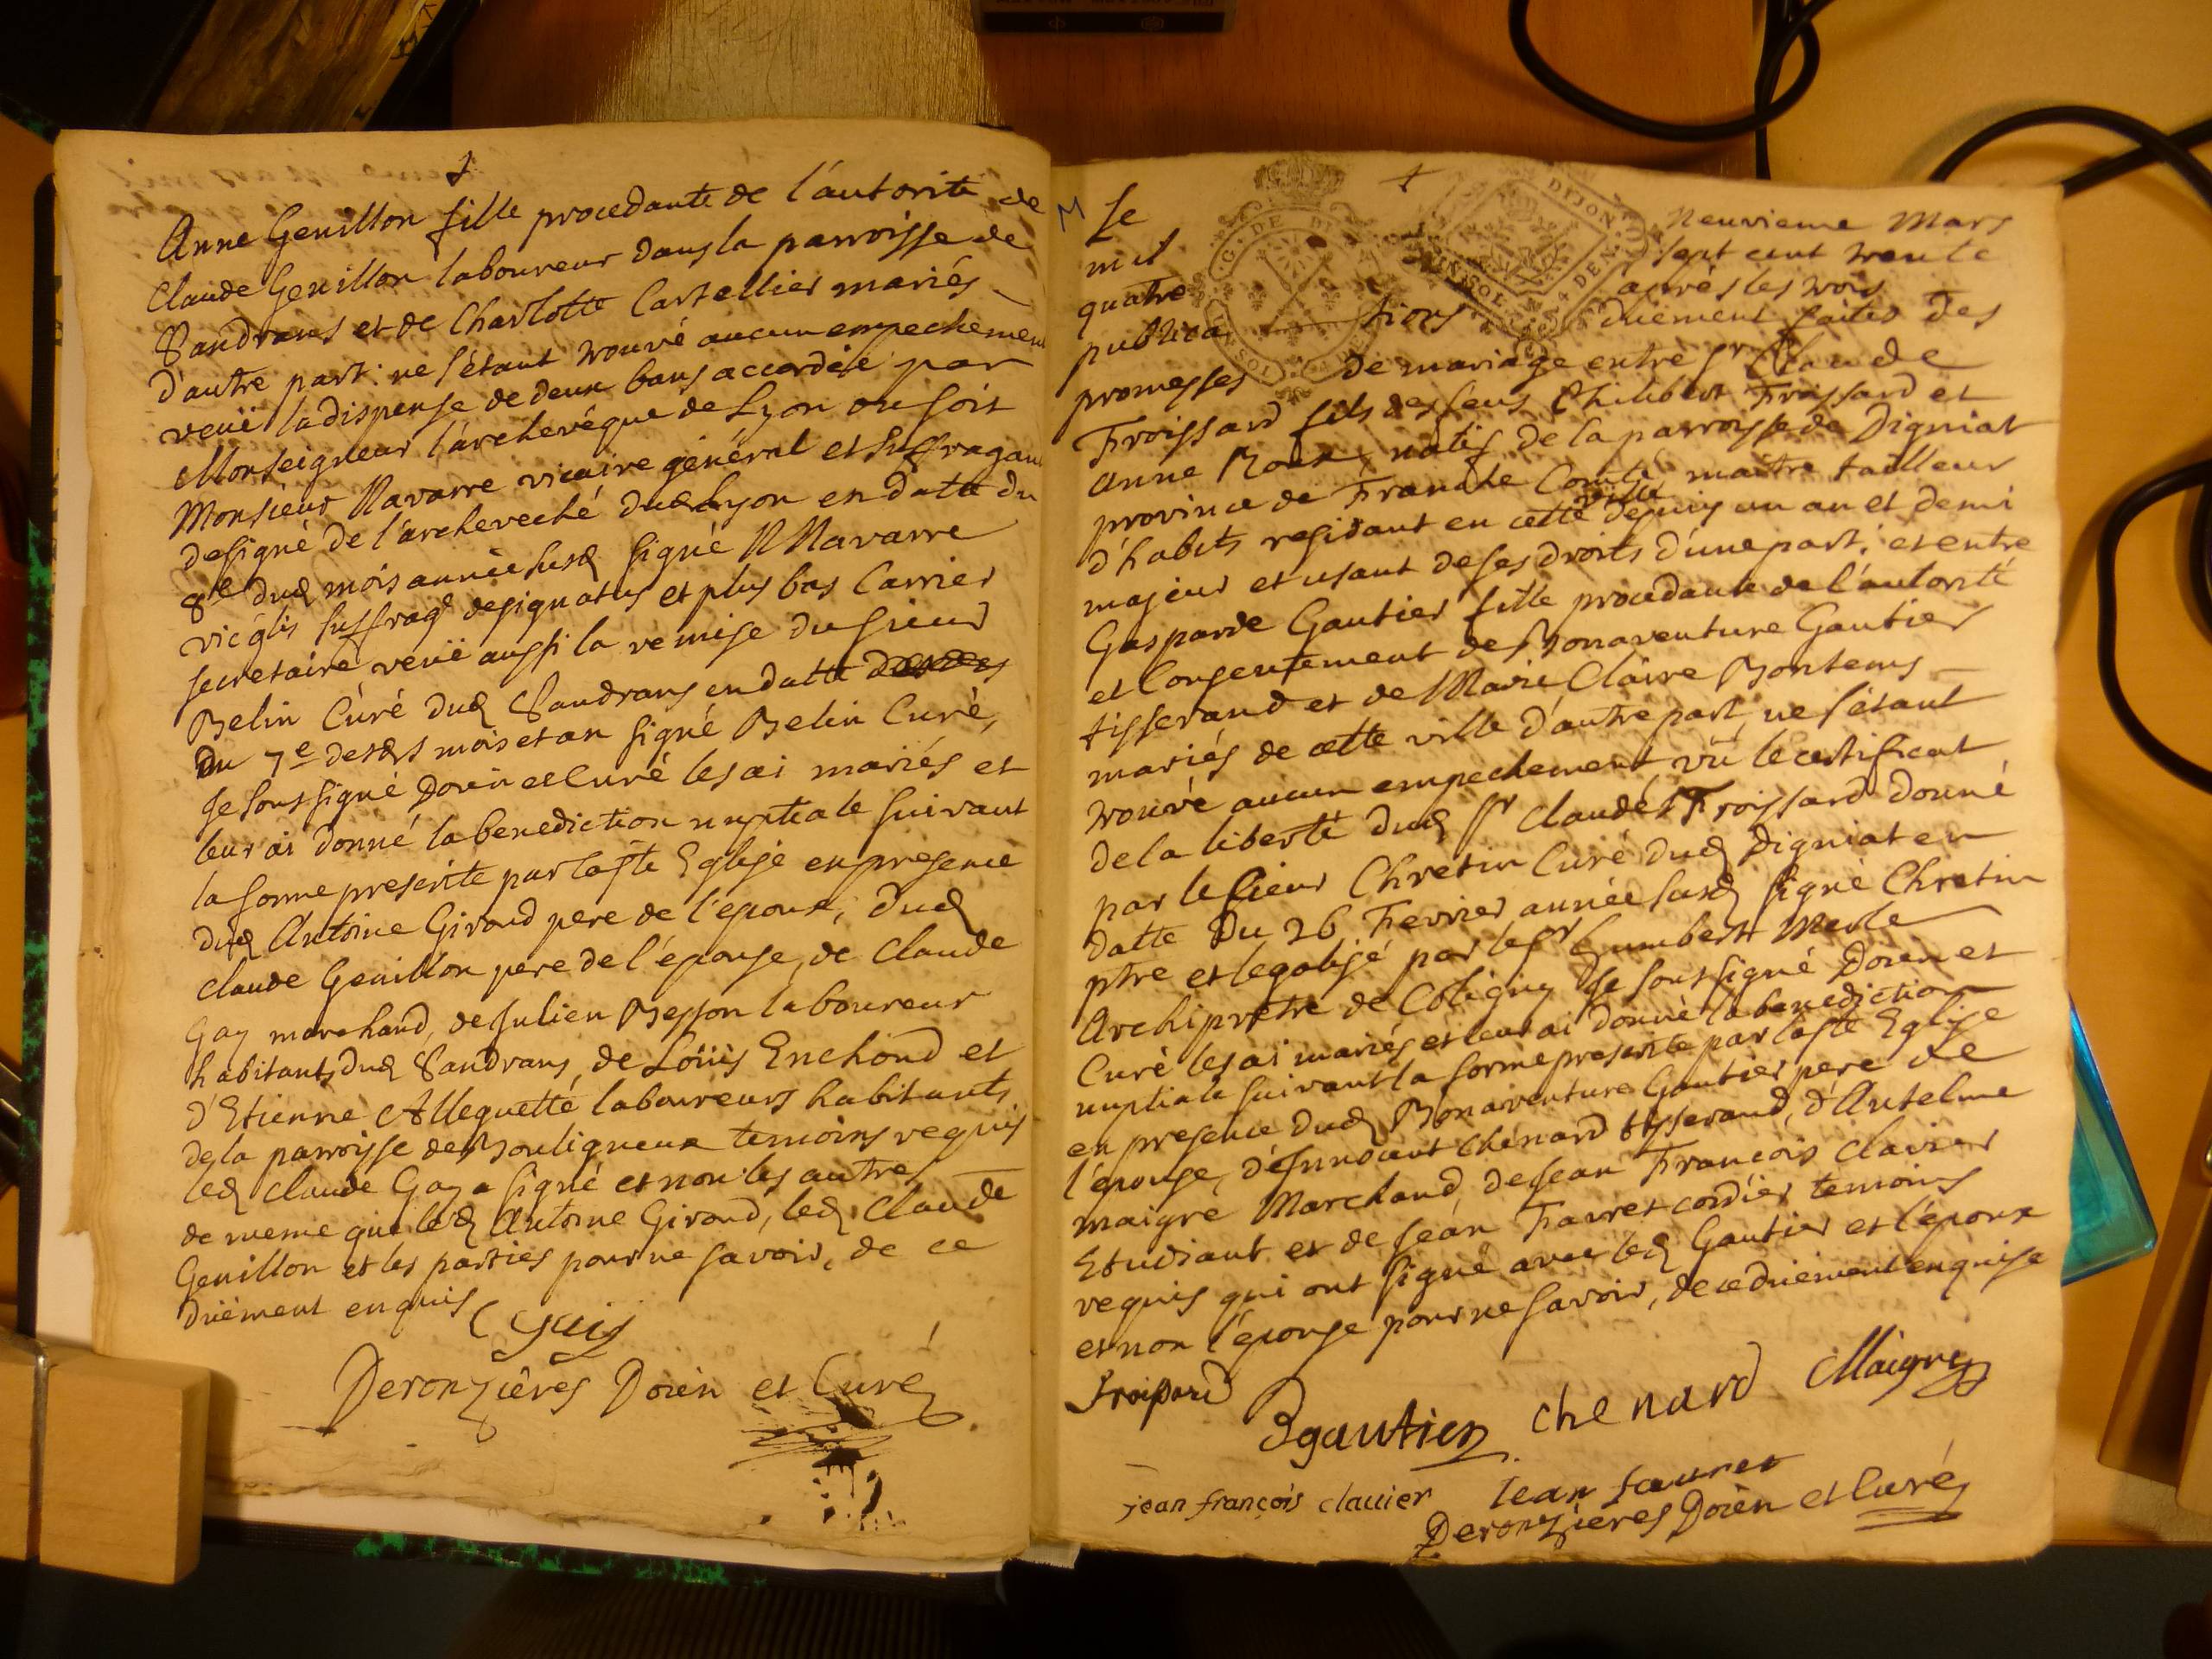 Anne Genillon fille procedante de l'autorite de
Claude Genillon laboureur dans la parroisse de
Sandrans et de Charlotte Cartellier mariés
d'autre part: ne s'étant trouvé aucun empechement
veuë la dispense de deux bans accordéé par
Monseigneur l'archevêque de Lyon ou soit
Monsieur Navarre vicaire général et suffragant
designé de l'archeveché dud Lyon en datte du
8e dud mois année susd signé N Navarre
vic glis suffrag designatus et plus bas Carrier
secretaire, veuë aussi la remise du sieur
Belin Curé dud Sandrans en datte
Du 7e desds mois et an signé Belin Curé,
Je soussigné Doien et Curé les ai mariés et
leur ai donné la benediction nuptiale suivant
la forme prescrite par la ste Eglise en presence
dud Antoine Giroud pere de l'epoux, dud
Claude Genillon pere de l'épouse, de Claude
Gay marchand, de Julien Besson laboureur
habitants dud Sandrans, de Loüis Enchond et
d'Etienne Alleguette laboureurs habitants
de la parroisse de Bouligneux temoins requis
led Claude Gay a signé et non les autres
de meme que led Antoine Giroud, led Claude
Genillon et les parties pour ne savoir, de ce
duëment enquis
C Gaij
Deronzières Doièn et Curé
M
Le neuvieme Mars
mil sept cent trente
quatre après les trois
publications duëment faites des
promesses de mariage entre sr Claude
Froissard fils des feus Philibert Froissard et
Anne Roux, natif de la parroisse de Digniat
province de Franche Comté maitre tailleur
d'habits residant en cette ville depuis un an et demi
majeur et usant de ses droits d'une part, et entre
Gasparde Gautier fille procedante de l'autorité
et Consentement de Bonaventure Gautier
tisserand et de Marie Claire Bontems
mariés de cette ville d'autre part, ne s'étant
trouvé aucun empechement vû le certificat
de la liberté dud sr Claude Froissard donné
par le sieur Chretin Curé dud Digniat en
datte Du 26 Fevrier année susd signé Chretin
ptre et legalisé par le sr Humbert Merle
Archiprètre de Coligny Je soussigné Doien et
Curé les ai mariés et leur ai donné la benediction
nuptiale suivant la forme prescrite par la ste Eglise
en presence dud Bonaventure Gautier pere de
l'épouse, d'Innocent Chenard tisserand, d'Antelme
maigre Marchand, de Jean François Clavier
Etudiant et de Jean Favret cordier temoins
requis qui ont signé avec led Gautier et l'époux
et non l'épouse pour ne savoir, de ce duëment enquise
froissard
Bgautier chenard Maigre
jean françois clavier Jean favret
Deronzières Doièn et Curé